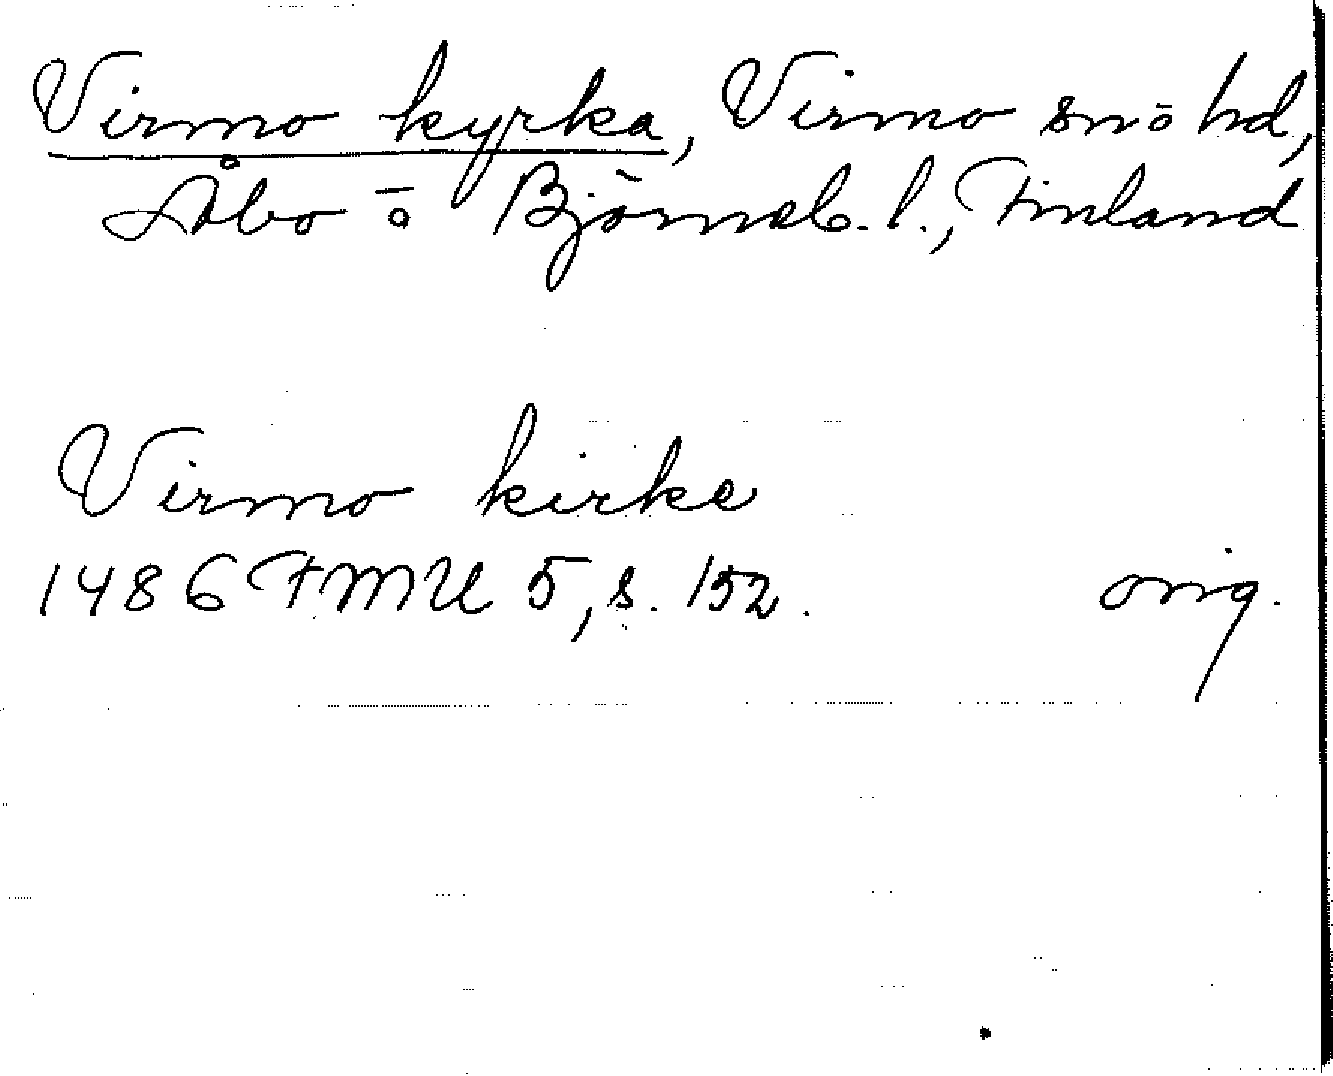 Virmo kyrka, Virmo sn ō hd,
Åbo ō Björneb. l., Finland
Virmo kirke
1486 FMU 5, s. 152. orig.